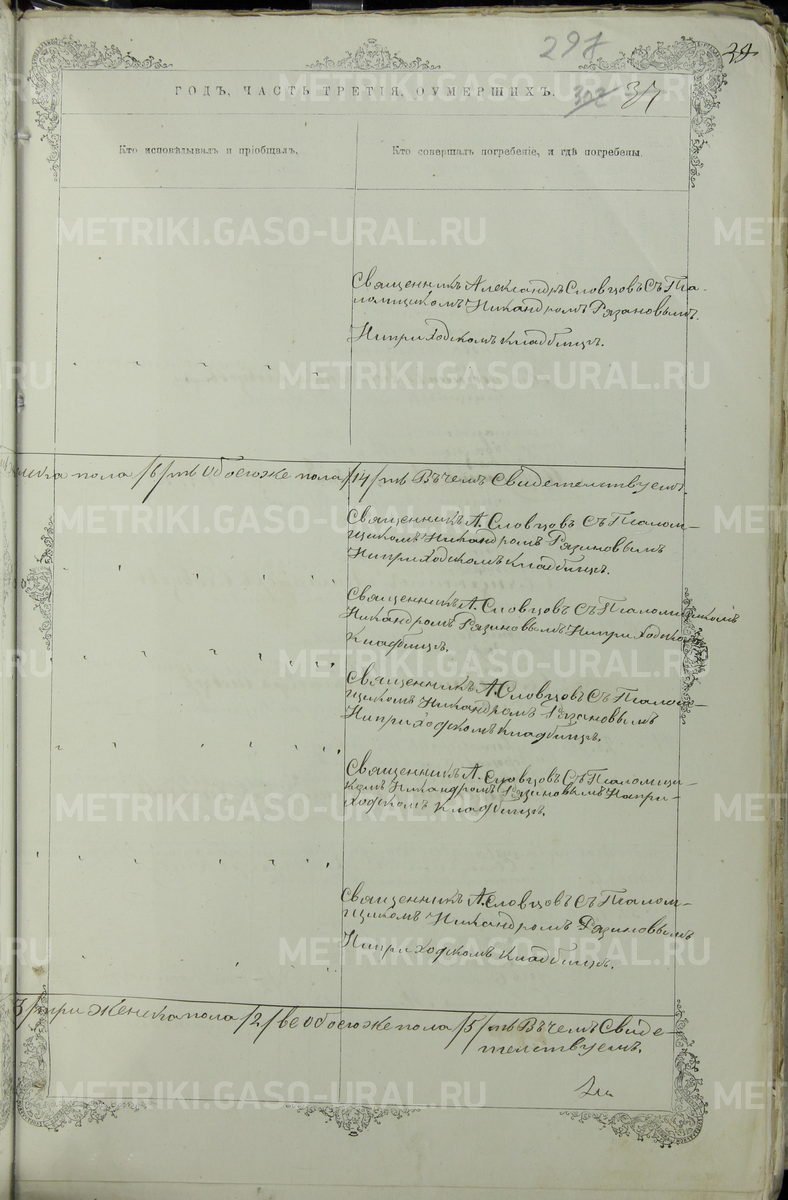 297
29
ГОДЪ, ЧАСТЬ ТРЕТІЯ, ОУМЕРШИХЪ.
302 37
Кто исповѣдывалъ и пріобщалъ.
Кто совершалъ погребеніе, и гдѣ погребены.
METRIKI.GASO-URAL.RU
Священникъ Александръ Словцовъ Съ Пса-
ломщикомъ Никандромъ Рязановымъ.
На приходскомъ кладбищѣ.
пола /6/ть Обоегоже пола /14/ть Въ чемъ Свидетельствуемъ.
Священникъ А. Словцовъ Съ Псалом-
щикомъ Никандромъ Рязановымъ
На приходскомъ кладбищѣ.
Священникъ А. Словцовъ Съ Псаломщикомъ
Никандромъ Рязановымъ На приходском
кладбищѣ.
Священникъ А. Словцовъ Съ Псалом-
щикомъ Никандромъ Рязановымъ
На приходскомъ кладбищѣ.
Священникъ А. Словцовъ Съ Псаломщи-
комъ Никандромъ Рязановымъ На при-
ходскомъ кладбищѣ.
Священникъ А. Словцовъ Съ Псалом-
щикомъ Никандромъ Рязановымъ
На приходскомъ кладбищѣ.
3/три Женска пола /2/ве Обоегоже пола /5/ть Въ чемъ Свиде-
тельствуемъ.